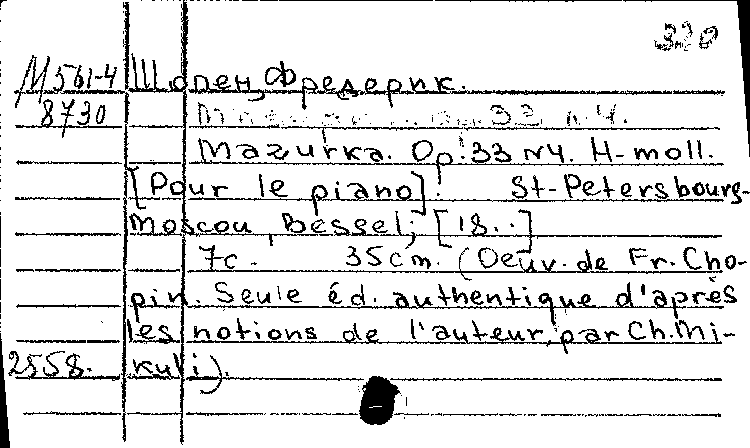 320
М561-4 Шопен, Фредерик.
8730 33 n.4.
Mazurka. Op. 33 N4. H-moll.
[Pour le piano]. St-Petersbourg-
Moscou, Bessel, [18..]
7c. 35cm. (Oeuv. de Fr. Cho-
pin. Seule éd. authentique d'après
les notions de l'auteur, par Ch. Mi-
2558. kuli).